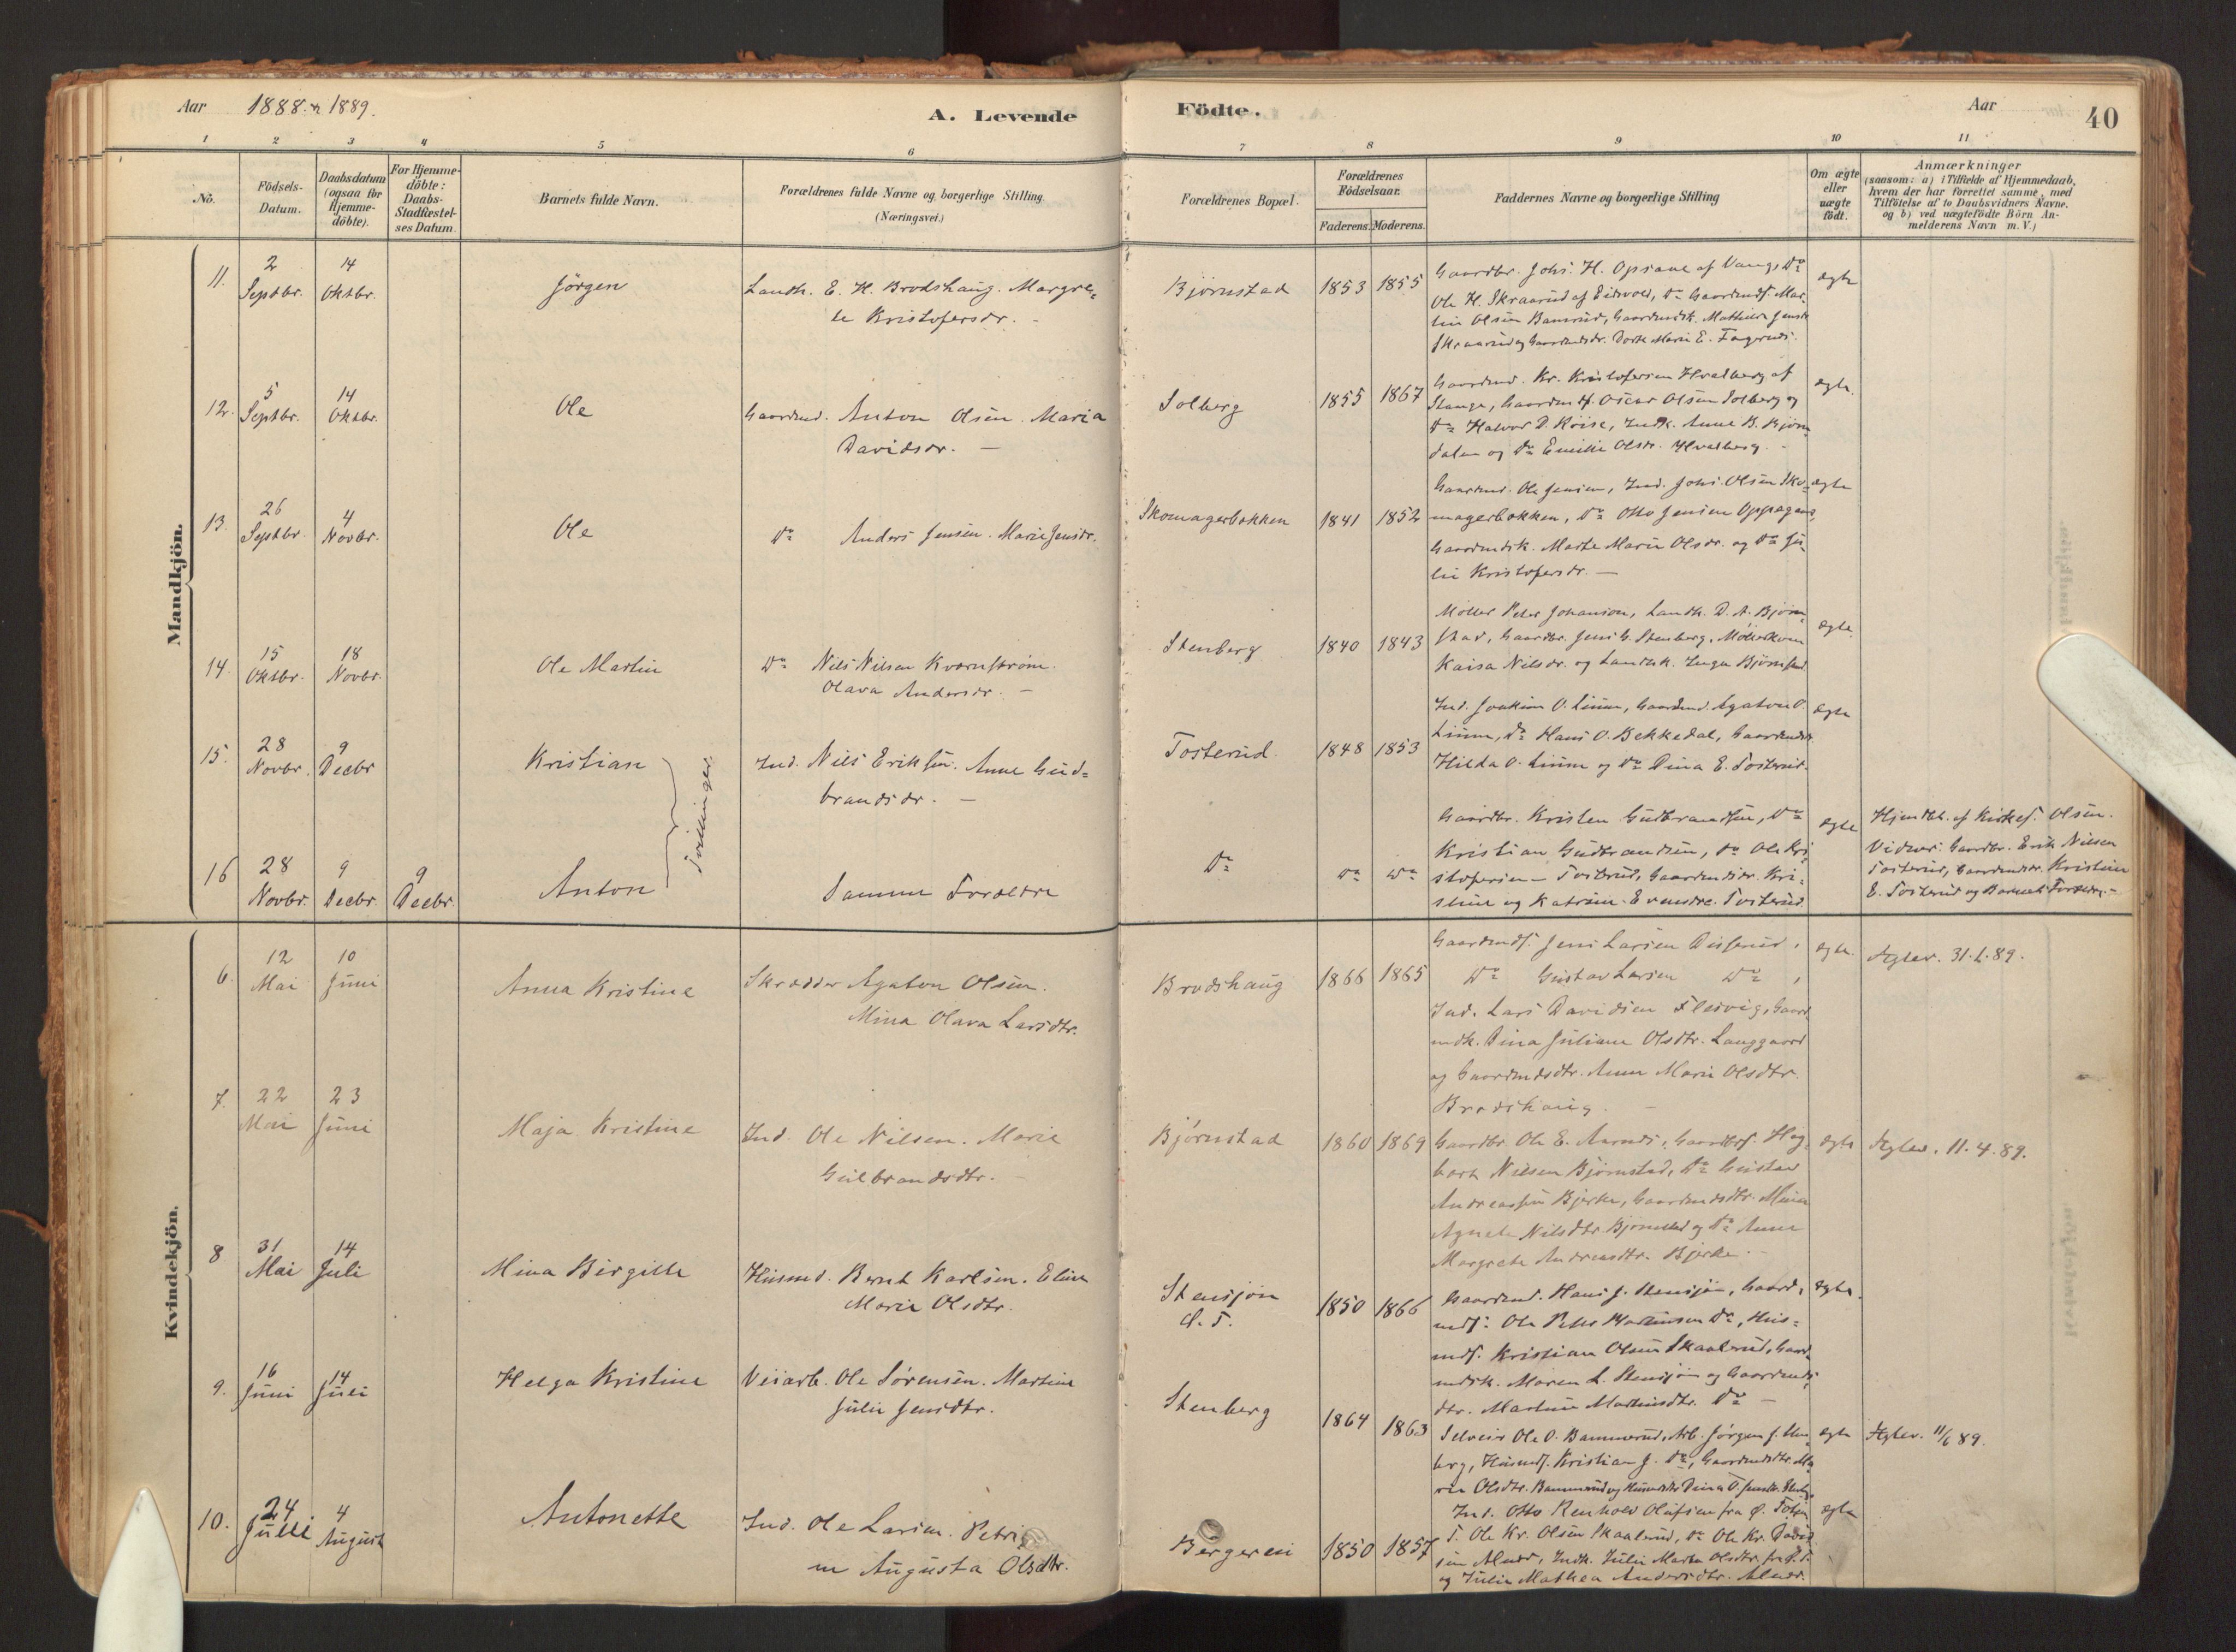 Aar 1888 & 1889.
A. Levende
Födte.
Aar
40
1 2 3 4 5 6 7 8 9 10 11
No.
Födsels-
Datum.
Daabsdatum
(ogsaa for
Hjemme-
döbte).
For Hjemme-
döbte:
Daabs-
Stadfæstel-
ses Datum.
Barnets fulde Navn.
Forældrenes fulde Navne og borgerlige Stilling
(Næringsvei.)
Forældrenes Bopæl.
Forældrenes
Födselsaar.
Faderens. Moderens.
Faddernes Navne og borgerlige Stilling
Om ægte
eller
uægte
födt.
Anmærkninger
(saasom: a) i Tilfælde af Hjemmedaab,
hvem der har forrettet samme, med
Tilföielse af to Daabsvidners Navne.
og b) ved uægtefödte Börn An-
melderens Navn m. V.)
Mandkjön.
11. 2 Septbr. 14 Oktbr. Jörgen
Landh. E. H. Brodshaug. Margre-
te Kristofersdr. -
Bjørnstad 1853 1855
Gaardbr. Johs. H. Opsane af Vang, Do
Ole H. Skraarud af Eidsvold, Do Gaardmds. Mar-
tin Olsen Bamrud, Gaardmdsk. Mathilde
Skraarud og Gaardmdsdr. Dorte Marie E. Fagerud.
ægte
12. 5 Septbr. 14 Oktbr. Ole
Gaardmd. Anton Olsen. Maria
Davidsdr. -
Solberg 1855 1867
Gaardmd. Kr. Kristofersen Hvalberg af
Stange, Gaardmds. Oscar Olsen Solberg og
Do Halvor D. Kôise, Indk. Anne B. Bjørn-
dalen og Do Emilie Olsdr. Hvalberg. -
ægte.
13. 26 Septbr. 4 Novbr. Ole
Do Anders Jensen. Marie Jensdr.
Skomagerbakken 1841 1852
Gaardmd. Ole Jensen, Ind. Johs. Olsen Sko-
magerbakken, Do Otto Jensen Oppegaard,
Gaardmdsk. Marte Marie Olsdr. og Do Ju-
lie Kristofersdr. -
ægte
14. 15 Oktbr. 18 Novbr. Ole Martin
Do Nils Nilsen Kværnstrøm.
Olava Andersdr. -
Stenberg 1840 1843
Møller Peter Johansen, Landh. D. A. Bjørn-
stad, Gaardbr. Jens G. Stenberg, Møllerkone
Kaisa Nilsdr. og Landhk. Inga Bjørnstad
ægte.
15. 28 Novbr. 9 Decbr Kristian
Tvillinger.
Ind. Nils Eriksen. Anne Gud-
brandsdr. -
Tosterud 1848 1853
Ind. Joakim O. Linna, Gaardmd. Agaton O.
Linna, Do Hans O. Bekkedal, Gaardmdsdr.
Hilda O. Linna og Do Dina E. Tosterud.
ægte
16 28 Novbr. 9 Decbr. 9 Decbr. Anton
Samme Forældre
Do Do Do
Gaardbr. Kristen Gudbrandsen, Do
Kristian Gudbrandsen, Do Ole Kri-
stofersen - Tosterud, Gaardmdsdr. Kri-
stine og Katrine Evensdre. Tosterud.
ægte
Hjemdbt. af Kirkes. Olsen.
Vidner: Gaardbr. Erik Nilsen
Tosterud, Gaardmdsdr. Kristine
E. Tosterud og Barnets Forældre.-
Kvindekjön.
6. 12 Mai 10 Juni Anna Kristine
Skrædder Agaton Olsen.
Mina Olava Larsdtr.
Brodshaug 1866 1865
Gaardmds. Jens Larsen Disserud,
Do Gustav Larsen Do,
Ind. Lars Davidsen Flesvig, Gaard-
mdk. Dina Juliane Olsdtr. Langgaard
og Gaardmdsdtr. Anne Marie Olsdtr.
Brodshaug. -
ægte. Atglev. 31.1.89.
7. 22 Mai 23 Juni Maja Kristine
Ind. Ole Nilsen. Marie
Gulbrandsdtr. -
Bjørnstad 1860 1869
Gaardbr. Ole E. Aarnes, Gaardbrs. Hag-
bart Nilsen Bjørnstad, Do Gustav
Andreassen Bjerke, Gaardmdsdtr. Mina
Agnete Nilsdtr. Bjørnstad og Do Anne
Margrete Andreasdtr. Bjerke. -
ægte Atglev. 11.4.89.
8 31 Mai 14 Juli Mina Birgitte
Husmd. Bernt Karlsen. Eline
Marie Olsdtr.
Stensjøn
Ø. T.
1850 1866
Gaardmd. Hans J. Stensjøn, Gaard-
mds. Ole Peter Martinsen Do, Hus-
mds. Kristian Olsen Skaalrud, Gaard-
mdsk. Maren L. Stensjøn og Gaardmds-
dtr. Martine Martinsdtr. Do -
ægte.
9. 16 Juni 14 Juli Helga Kristine
Veiarb. Ole Sørensen. Martine
Julie Jensdtr.
Stenberg 1864 1863
Selveier Ole O. Bammerud, Arb. Jørgen J. Sten-
berg, Husmds. Kristian J. Do, Gaardmdsdtr. Ma-
rie Olsdtr. Bammerud og Husmdsdtr. Dina
ægte Atglev. 11/6 89.
10. 24 Juli 4 August Antonette
Ind. Ole Larsen. Petri-
ne Augusta Olsdtr.
Bergereie 1850 1857
Ind. Otto Renhold Olafsen fra Ø. Toten
S. Ole Kr. Olsen Skaalrud, Do Ole Kr. David-
sen Alnæs, Indk. Julie Marie Olsdtr. fra Ø. T.
og Julie Mathea Andersdtr. Alnæs.
ægte